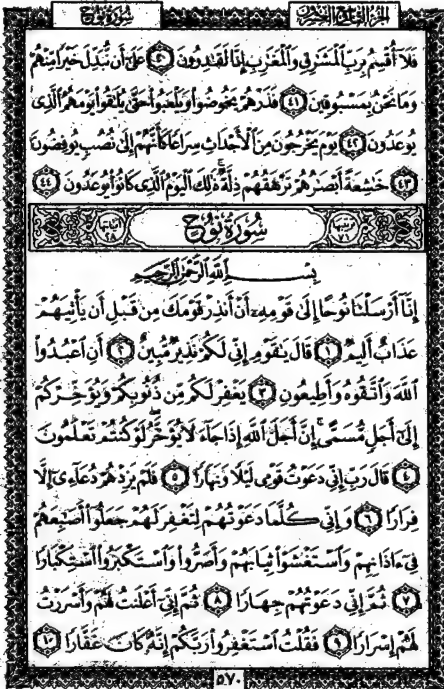 سُورَةُ نُوحٍ الجزء التاسع والعشرون
فَلَآ أُقْسِمُ بِرَبِّ ٱلْمَشَٰرِقِ وَٱلْمَغَٰرِبِ إِنَّا لَقَٰدِرُونَ ٤٠ عَلَىٰٓ أَن نُّبَدِّلَ خَيْرًا مِّنْهُمْ
وَمَا نَحْنُ بِمَسْبُوقِينَ ٤١ فَذَرْهُمْ يَخُوضُوا۟ وَيَلْعَبُوا۟ حَتَّىٰ يُلَٰقُوا۟ يَوْمَهُمُ ٱلَّذِى
يُوعَدُونَ ٤٢ يَوْمَ يَخْرُجُونَ مِنَ ٱلْأَجْدَاثِ سِرَاعًا كَأَنَّهُمْ إِلَىٰ نُصُبٍ يُوفِضُونَ
٤٣ خَٰشِعَةً أَبْصَٰرُهُمْ تَرْهَقُهُمْ ذِلَّةٌ ۚ ذَٰلِكَ ٱلْيَوْمُ ٱلَّذِى كَانُوا۟ يُوعَدُونَ ٤٤
ترتيبها ٧١ سُورَةُ نُوحٍ آياتها ٢٨
بِسْمِ ٱللَّهِ ٱلرَّحْمَٰنِ ٱلرَّحِيمِ
إِنَّآ أَرْسَلْنَا نُوحًا إِلَىٰ قَوْمِهِۦٓ أَنْ أَنذِرْ قَوْمَكَ مِن قَبْلِ أَن يَأْتِيَهُمْ
عَذَابٌ أَلِيمٌ ١ قَالَ يَٰقَوْمِ إِنِّى لَكُمْ نَذِيرٌ مُّبِينٌ ٢ أَنِ ٱعْبُدُوا۟
ٱللَّهَ وَٱتَّقُوهُ وَأَطِيعُونِ ٣ يَغْفِرْ لَكُم مِّن ذُنُوبِكُمْ وَيُؤَخِّرْكُمْ
إِلَىٰٓ أَجَلٍ مُّسَمًّى ۚ إِنَّ أَجَلَ ٱللَّهِ إِذَا جَآءَ لَا يُؤَخَّرُ ۖ لَوْ كُنتُمْ تَعْلَمُونَ
٤ قَالَ رَبِّ إِنِّى دَعَوْتُ قَوْمِى لَيْلًا وَنَهَارًا ٥ فَلَمْ يَزِدْهُمْ دُعَآءِىٓ إِلَّا
فِرَارًا ٦ وَإِنِّى كُلَّمَا دَعَوْتُهُمْ لِتَغْفِرَ لَهُمْ جَعَلُوٓا۟ أَصَٰبِعَهُمْ
فِىٓ ءَاذَانِهِمْ وَٱسْتَغْشَوْا۟ ثِيَابَهُمْ وَأَصَرُّوا۟ وَٱسْتَكْبَرُوا۟ ٱسْتِكْبَارًا
٧ ثُمَّ إِنِّى دَعَوْتُهُمْ جِهَارًا ٨ ثُمَّ إِنِّىٓ أَعْلَنتُ لَهُمْ وَأَسْرَرْتُ
لَهُمْ إِسْرَارًا ٩ فَقُلْتُ ٱسْتَغْفِرُوا۟ رَبَّكُمْ إِنَّهُۥ كَانَ غَفَّارًا ١٠
٥٧٠